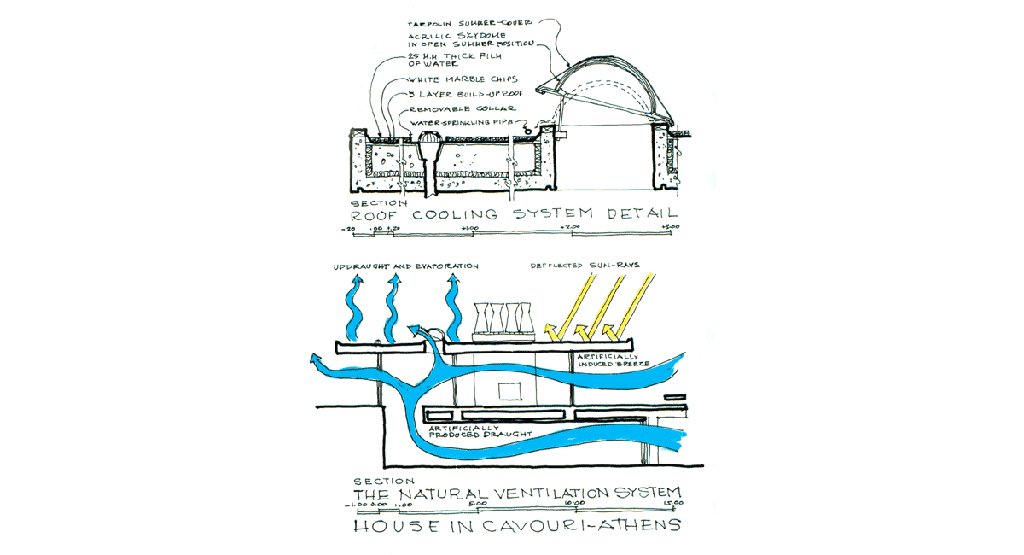 TARPOLIN SUMMER-COVER
ACRILIC SKYDOME
IN OPEN SUMMER POSITION
25 M.M THICK FILM
OF WATER
WHITE MARBLE CHIPS
3 LAYER BUILD-UP ROOF
REMOVABLE COLLAR
WATER-SPRINCLING PIPE
SECTION
ROOF COOLING SYSTEM DETAIL
+1.00 +2.00 +3.00
UPDRAUGHT AND EVAPORATION
DEFFLECTED SUN-RAYS
ARTIFICIALLY
INDUCED BREEZE
ARTIFICIALLY
PRODUCED DRAUGHT
SECTION
THE NATURAL VENTILATION SYSTEM
-1.00 0.00 +1.00 5.00 10.00 15.00
HOUSE IN CAVOURI-ATHENS